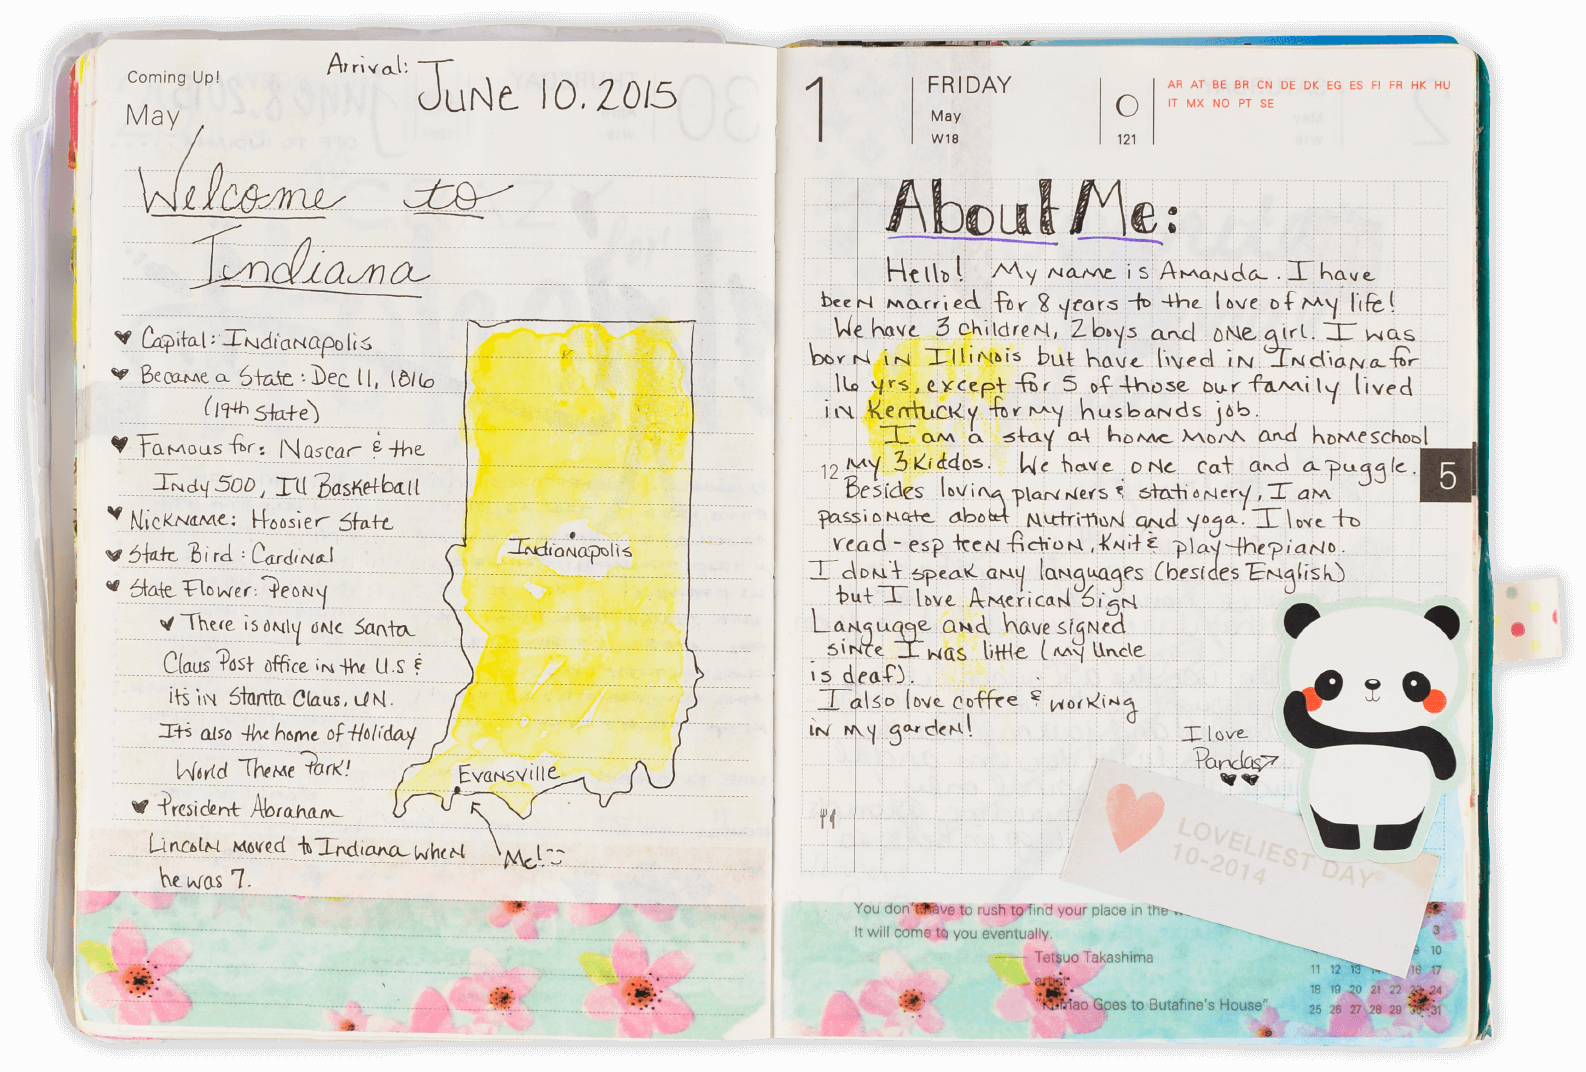 Coming Up!
May
Arrival: June 10. 2015
Welcome to
Indiana
Capital: Indianapolis
Became a State: Dec 11, 1816
(19th State)
Famous for: Nascar & the
Indy 500, IU Basketball
Nickname: Hoosier State
State Bird: Cardinal
State Flower: Peony
There is only one Santa
Claus Post office in the U.S &
its in Stanta Claus, IN.
It's also the home of Holiday
World Theme Park!
President Abraham
Lincoln moved to Indiana when
he was 7.
Indianapolis
Evansville
Me!
1
FRIDAY
May
W18
121
AR AT BE BR CN DE DK EG ES FI FR HK HU
IT MX NO PT SE
About Me:
Hello! My name is Amanda. I have
been married for 8 years to the love of my life!
We have 3 children, 2 boys and one girl. I was
born in Illinois but have lived in Indiana for
16 yrs, except for 5 of those our family lived
in Kentucky for my husbands job.
I am a stay at home mom and homeschool
12 my 3 kiddos. We have one cat and a puggle.
5
Besides loving planners & stationery, I am
passionate about nutrition and yoga. I love to
read-esp teen fiction, knit & play the piano.
I don't speak any languages (besides English)
but I love American Sign
Language and have signed
since I was little (my Uncle
is deaf).
I also love coffee & working
in my garden!
I love
Pandas
LOVELIEST DAY
10-2014
You don't have to rush to find your place in the
It will come to you eventually.
Tetsuo Takashima
artist
Goes to Butafine's House"
3
9 10
11 12 13 14 16 17
18 19 20 21 22 23 24
25 26 27 28 29 30 31